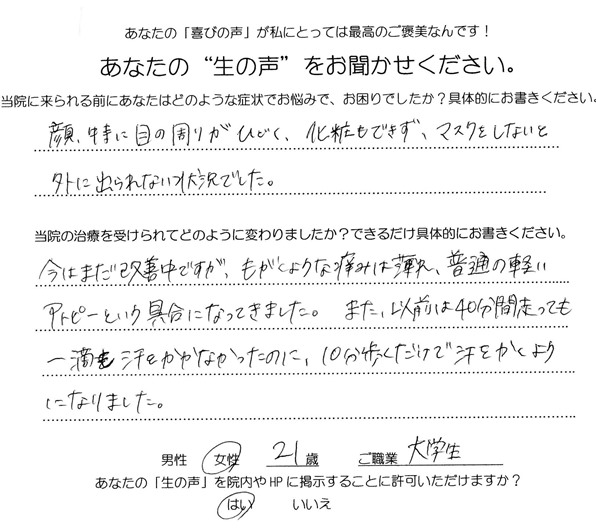 あなたの「喜びの声」が私にとっては最高のご褒美なんです！
あなたの“生の声”をお聞かせください。
当院に来られる前にあなたはどのような症状でお悩みで、お困りでしたか？具体的にお書きください。
顔、特に目の周りがひどく、化粧もできず、マスクをしないと
外に出られない状況でした。
当院の治療を受けられてどのように変わりましたか？できるだけ具体的にお書きください。
今はまだ改善中ですが、もがくような痛みは薄れ、普通の軽い
アトピーという具合になってきました。また、以前は40分間走っても
一滴も汗をかかなかったのに、10分歩くだけで汗をかくよう
になりました。
男性 女性 21歳 ご職業 大学生
あなたの「生の声」を院内やHPに掲示することに許可いただけますか？
はい いいえ